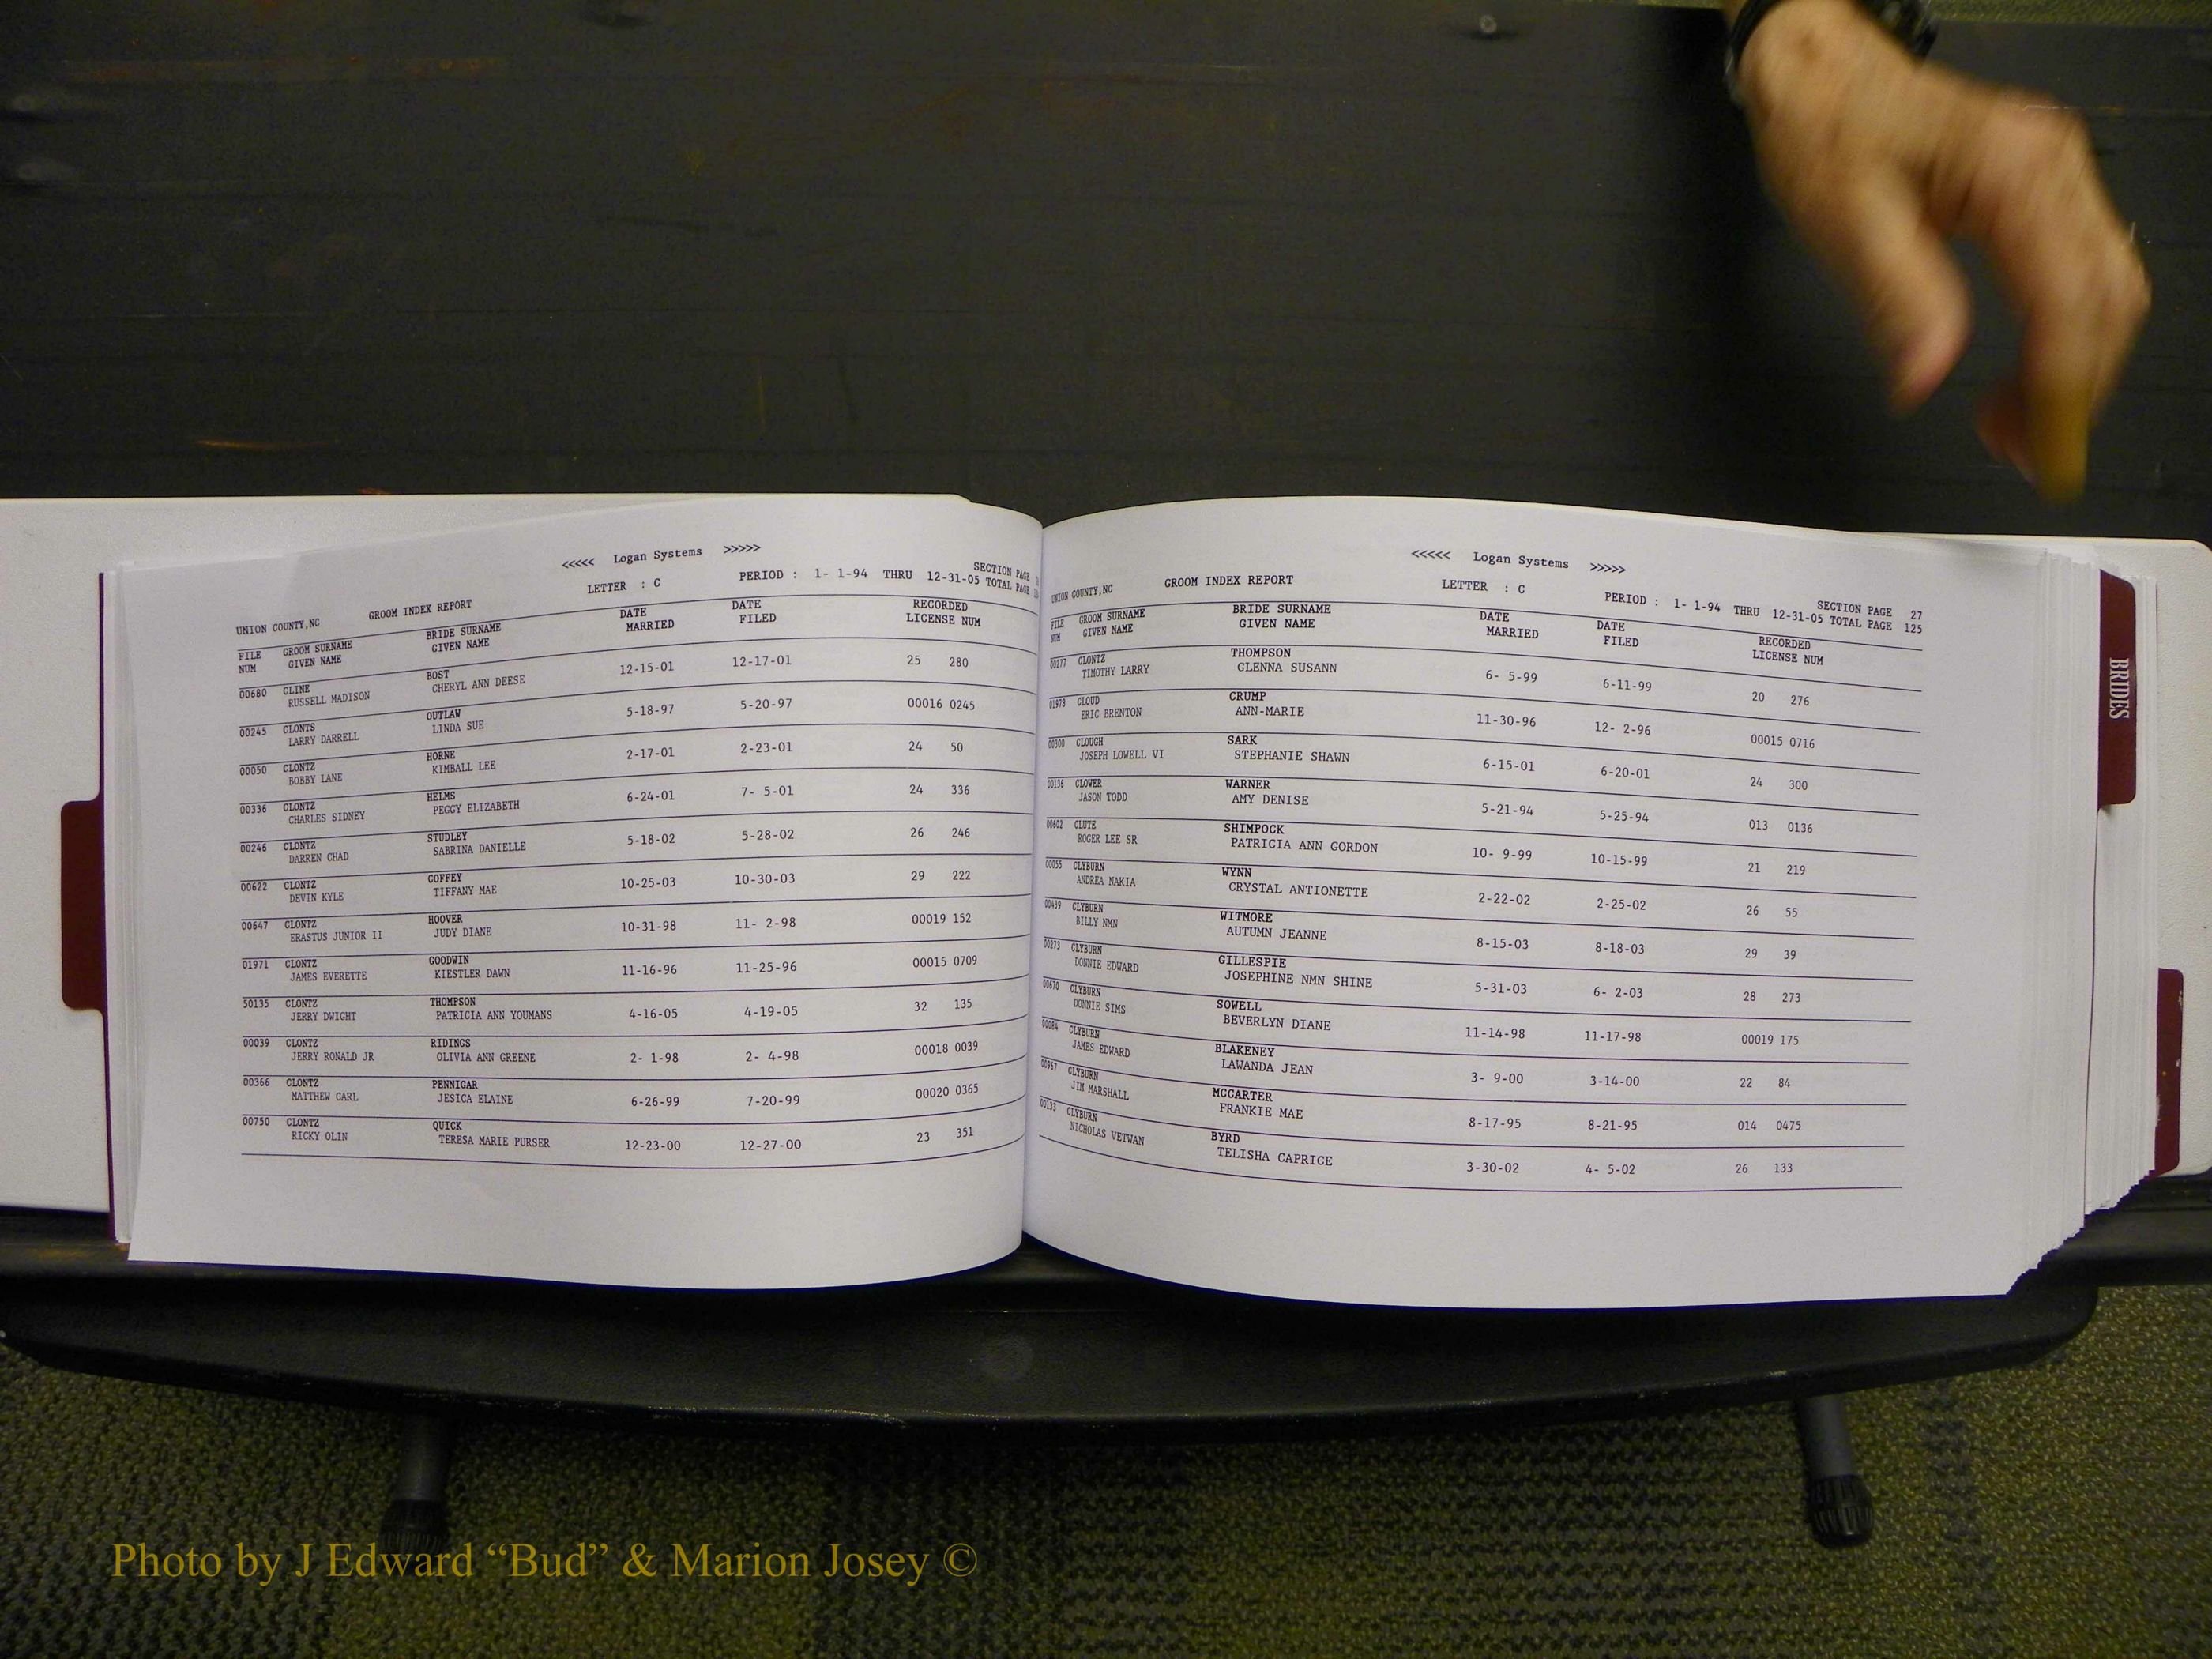 <<<<< Logan Systems >>>>>
UNION COUNTY,NC GROOM INDEX REPORT LETTER : C PERIOD : 1- 1-94 THRU 12-31-05 SECTION PAGE
TOTAL PAGE
FILE GROOM SURNAME BRIDE SURNAME DATE DATE RECORDED
NUM GIVEN NAME GIVEN NAME MARRIED FILED LICENSE NUM
00680 CLINE BOST 12-15-01 12-17-01 25 280
RUSSELL MADISON CHERYL ANN DEESE
00245 CLONTS OUTLAW 5-18-97 5-20-97 00016 0245
LARRY DARRELL LINDA SUE
00050 CLONTZ HORNE 2-17-01 2-23-01 24 50
BOBBY LANE KIMBALL LEE
00336 CLONTZ HELMS 6-24-01 7- 5-01 24 336
CHARLES SIDNEY PEGGY ELIZABETH
00246 CLONTZ STUDLEY 5-18-02 5-28-02 26 246
DARREN CHAD SABRINA DANIELLE
00622 CLONTZ COFFEY 10-25-03 10-30-03 29 222
DEVIN KYLE TIFFANY MAE
00647 CLONTZ HOOVER 10-31-98 11- 2-98 00019 152
ERASTUS JUNIOR II JUDY DIANE
01971 CLONTZ GOODWIN 11-16-96 11-25-96 00015 0709
JAMES EVERETTE KIESTLER DAWN
50135 CLONTZ THOMPSON 4-16-05 4-19-05 32 135
JERRY DWIGHT PATRICIA ANN YOUMANS
00039 CLONTZ RIDINGS 2- 1-98 2- 4-98 00018 0039
JERRY RONALD JR OLIVIA ANN GREENE
00366 CLONTZ PENNIGAR 6-26-99 7-20-99 00020 0365
MATTHEW CARL JESICA ELAINE
00750 CLONTZ QUICK 12-23-00 12-27-00 23 351
RICKY OLIN TERESA MARIE PURSER
<<<<< Logan Systems >>>>>
UNION COUNTY,NC GROOM INDEX REPORT LETTER : C PERIOD : 1- 1-94 THRU 12-31-05 SECTION PAGE 27
TOTAL PAGE 125
FILE GROOM SURNAME BRIDE SURNAME DATE DATE RECORDED
NUM GIVEN NAME GIVEN NAME MARRIED FILED LICENSE NUM
00277 CLONTZ THOMPSON 6- 5-99 6-11-99 20 276
TIMOTHY LARRY GLENNA SUSANN
01978 CLOUD CRUMP 11-30-96 12- 2-96 00015 0716
ERIC BRENTON ANN-MARIE
00300 CLOUGH SARK 6-15-01 6-20-01 24 300
JOSEPH LOWELL VI STEPHANIE SHAWN
00136 CLOWER WARNER 5-21-94 5-25-94 013 0136
JASON TODD AMY DENISE
00602 CLUTE SHIMPOCK 10- 9-99 10-15-99 21 219
ROGER LEE SR PATRICIA ANN GORDON
00055 CLYBURN WYNN 2-22-02 2-25-02 26 55
ANDREA NAKIA CRYSTAL ANTIONETTE
00439 CLYBURN WITMORE 8-15-03 8-18-03 29 39
BILLY NMN AUTUMN JEANNE
00273 CLYBURN GILLESPIE 5-31-03 6- 2-03 28 273
DONNIE EDWARD JOSEPHINE NMN SHINE
00670 CLYBURN SOWELL 11-14-98 11-17-98 00019 175
DONNIE SIMS BEVERLYN DIANE
00084 CLYBURN BLAKENEY 3- 9-00 3-14-00 22 84
JAMES EDWARD LAWANDA JEAN
00967 CLYBURN MCCARTER 8-17-95 8-21-95 014 0475
JIM MARSHALL FRANKIE MAE
00133 CLYBURN BYRD 3-30-02 4- 5-02 26 133
NICHOLAS VETWAN TELISHA CAPRICE
BRIDES
Photo by J Edward “Bud” & Marion Josey ©